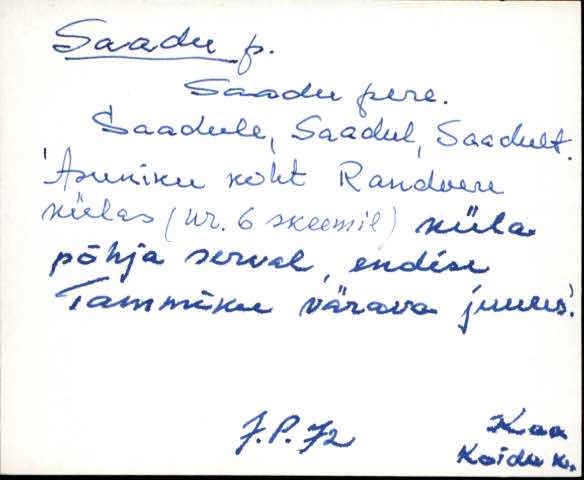 Saadu p.
Saadu pere.
Saadule, Saadul, Saadult.
'Asuniku koht Randvere
külas (nr. 6 skeemil) küla
põhja serval, endise
Tammiku värava juures'.
J.P. 72
Kaa
Koidu k.